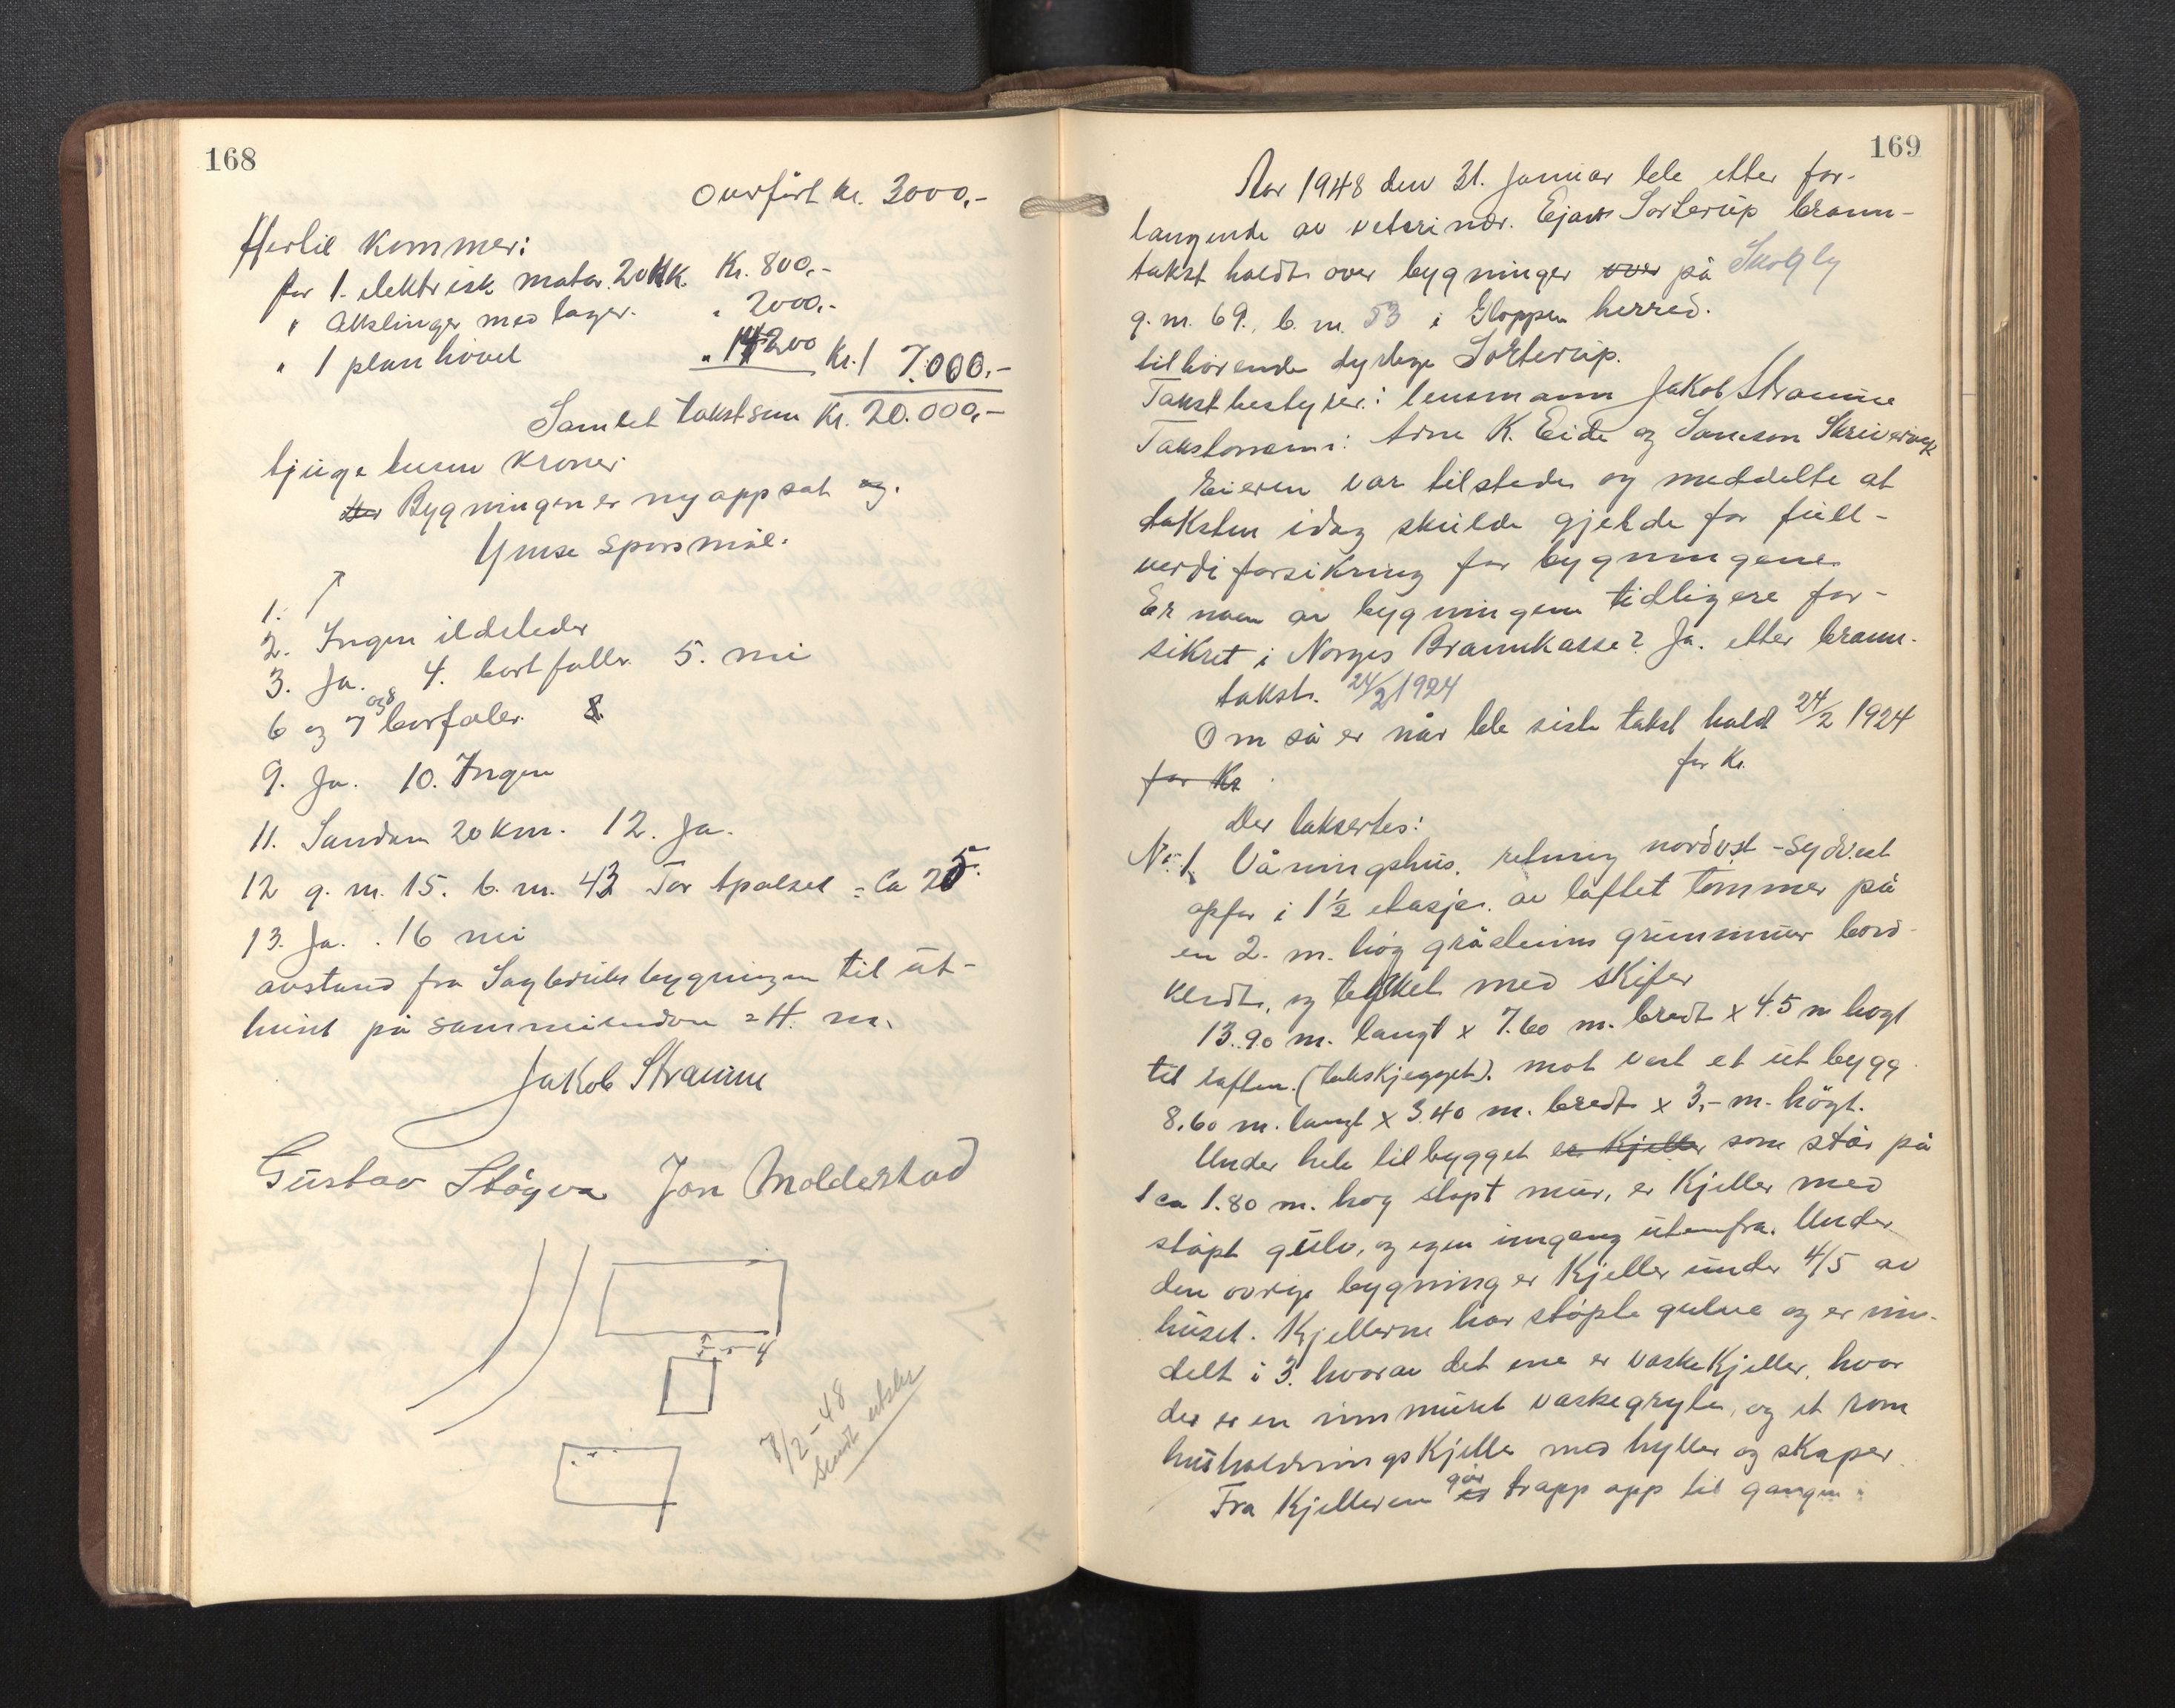 168
Overført kr. 3000,-
Hertil kommer:
for 1. elektrisk motor 20 HK. Kr. 800,-
" Akslinger med lager. " 2000,-
" 1 planhövel " 14200 Kr. 17.000,-
Samlet takstsum Kr. 20.000,-
tjuge tusen kroner
Bygningen er ny oppsat og.
Ymse spørsmål.
1.
2. Ingen ildsteder
3. Ja. 4. bortfaller. 5. nei
6 og 7 og 8 borfaler. 8.
9. Ja. 10. Ingen
11. Sandane 20 km. 12. Ja.
12 g. nr. 15. b. nr. 43 Tor Apalset = Ca 25.
13. Ja. . 16 nei
avstand fra Sagbruksbygningen til ut-
huset på sammeiendom = 4. m.
Jakob Straume
Gustav Støyva Jon Moldestad
4
7/2-48
sendt utskr
169
Aar 1948 den 31. Januar ble etter for-
langende av veterinær. Ejars Sorterup brann-
takst holdt over bygninger over på Skogly
g. nr. 69., b. nr. 53 i Gloppen herred.
tilhørende dyrlege Sorterup.
Takstbestyrer: lensmann Jakob Straume
Takstmenn: Arne K. Eide og Samson Skrivervik
Eieren var tilstede og meddelte at
taksten idag skulde gjelde for full-
verdiforsikring for bygningene
Er noen av bygningene tidligere for-
sikret i Norges Brannkasse? Ja. etter brann-
takst. 24/2 1924
Om så er når ble siste takst holdt 24/2 1924
for Kr.
for Kr
Der taksertes:
No: 1. Våningshus. retning nordøst - sydvest
oppfør i 1 1/2 etasjer. av laftet tømmer på
en 2. m. høg gråsteins grunnmur bord-
kledt, og tekket med skifer
13.90 m. langt x 7.60 m. bredt x 4.5 m høgt
til raften. (takskjegget). mot vest et utbygg
8.60 m. langt x 3.40 m. bredt x 3,- m. högt.
Under hele tilbygget er Kjeller som står på
1 ca 1.80 m. høg støpt mur, er Kjeller med
støpt gulv, og egen inngang utenfra. Under
den øvrige bygning er Kjeller under 4/5 av
huset. Kjellerne har støpte gulve og er inn-
delt i 3. hvorav det ene er vaskeKjeller, hvor
der er en innmuret vaskegryte, og et rom
husholdningsKjeller med hyller og skaper.
Fra Kjelleren går er trapp opp til gangen i